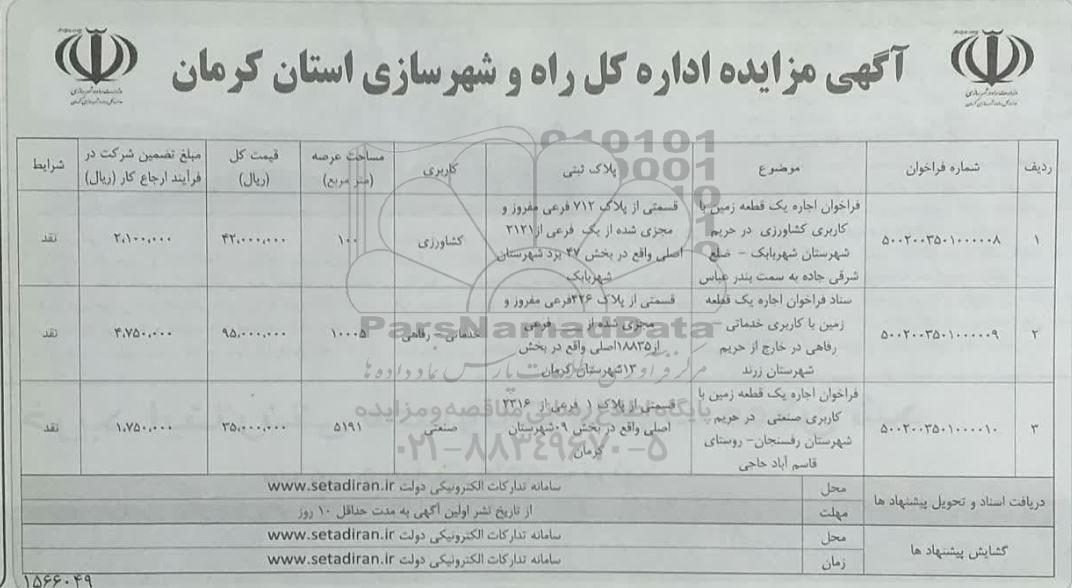 آگهی مزایده اداره کل راه و شهرسازی استان کرمان
ردیف
شماره فراخوان
موضوع
پلاک ثبتی
کاربری
مساحت عرصه
(متر مربع)
قیمت کل
(ریال)
مبلغ تضمین شرکت در
فرآیند ارجاع کار (ریال)
شرایط
۱
۵۰۰۲۰۰۳۵۰۱۰۰۰۰۰۸
فراخوان اجاره یک قطعه زمین با
کاربری کشاورزی در حریم
شهرستان شهربابک – ضلع
شرقی جاده به سمت بندر عباس
قسمتی از پلاک ۷۱۲ فرعی مفروز و
مجزی شده از یک فرعی از ۲۱۲۱
اصلی واقع در بخش ۴۷ یزد شهرستان
شهربابک
کشاورزی
۱۰۰
۴۲،۰۰۰،۰۰۰
۲،۱۰۰،۰۰۰
نقد
۲
۵۰۰۲۰۰۳۵۰۱۰۰۰۰۰۹
ستاد فراخوان اجاره یک قطعه
زمین با کاربری خدماتی –
رفاهی در خارج از حریم
شهرستان زرند
قسمتی از پلاک ۲۲۶فرعی مفروز و
مجزی شده از فرعی
از۱۸۸۳۵اصلی واقع در بخش
۱۳شهرستان کرمان
خدماتی – رفاهی
۱۰۰۰۵
۹۵،۰۰۰،۰۰۰
۴،۷۵۰،۰۰۰
نقد
۳
۵۰۰۲۰۰۳۵۰۱۰۰۰۰۱۰
فراخوان اجاره یک قطعه زمین با
کاربری صنعتی در حریم
شهرستان رفسنجان– روستای
قاسم آباد حاجی
قسمتی از پلاک ۱ فرعی از ۲۳۱۶
اصلی واقع در بخش ۰۹شهرستان
کرمان
صنعتی
۵۱۹۱
۳۵،۰۰۰،۰۰۰
۱،۷۵۰،۰۰۰
نقد
دریافت اسناد و تحویل پیشنهاد ها
محل
سامانه تدارکات الکترونیکی دولت www.setadiran.ir
مهلت
از تاریخ نشر اولین آگهی به مدت حداقل ۱۰ روز
گشایش پیشنهاد ها
محل
سامانه تدارکات الکترونیکی دولت www.setadiran.ir
زمان
سامانه تدارکات الکترونیکی دولت www.setadiran.ir
۱۵۶۶۰۴۹
ParsNamadData
مرکز فرآوری اطلاعات پارس نماد داده ها
پایگاه اطلاع رسانی مناقصه و مزایده
۰۲۱-۸۸۳۴۹۶۷۰-۵